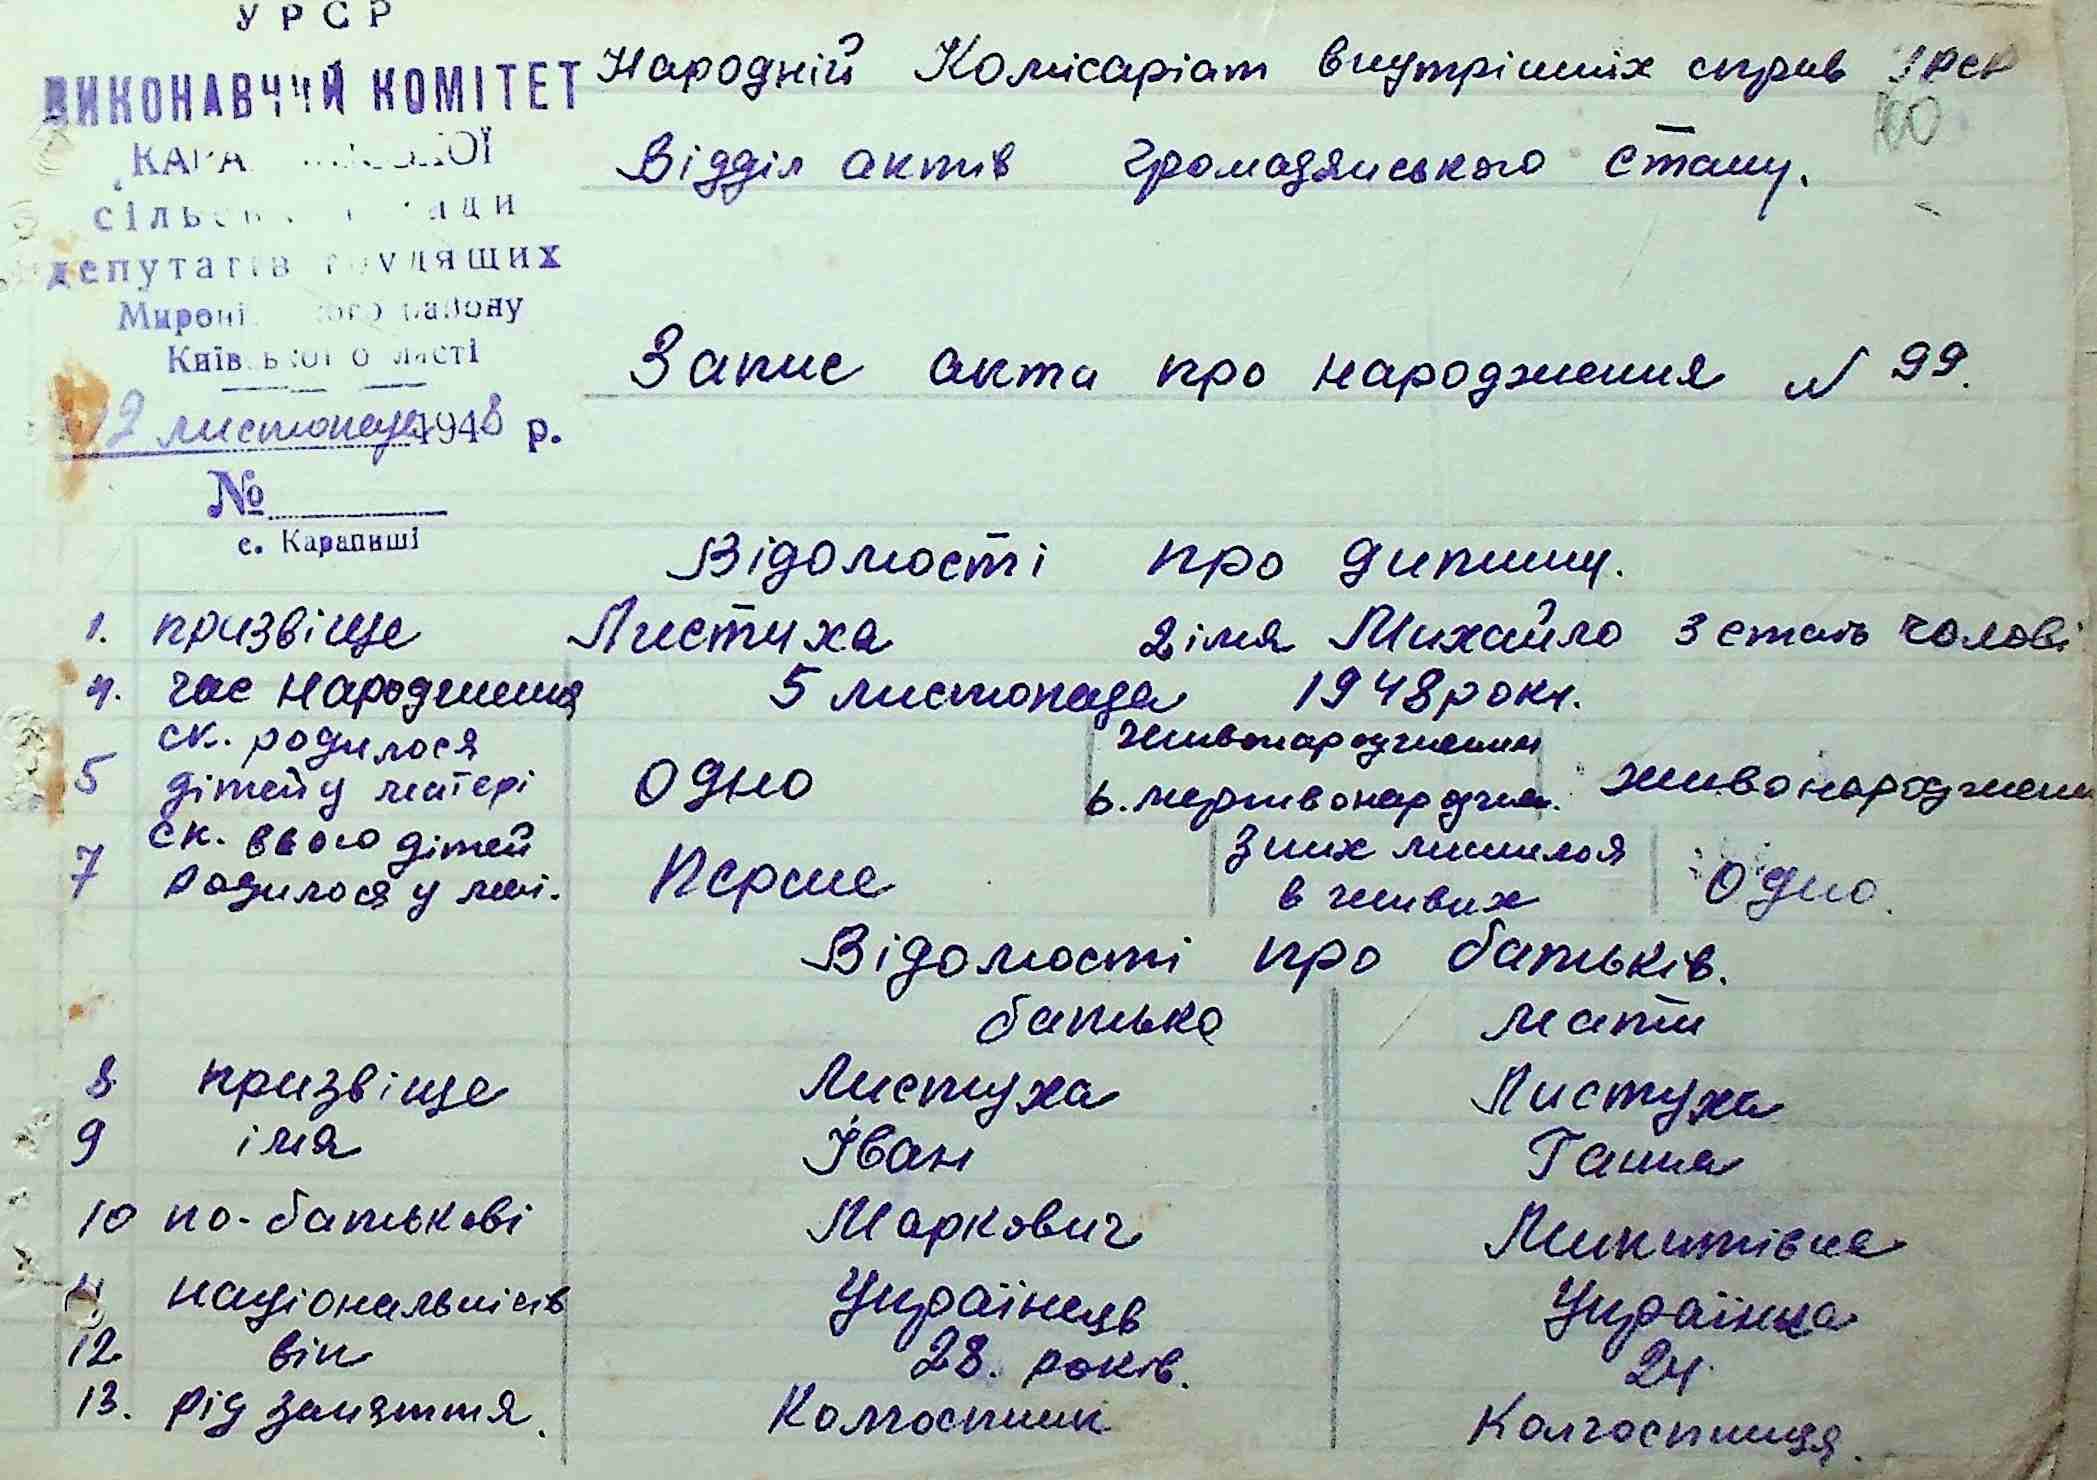 УРСР
ВИКОНАВЧИЙ КОМІТЕТ
депутатів трудящих
Київської області
12 листопада 1948 р.
№
с. Карапиші
Народній Комісаріат внутрішніх справ УРСР
100
Відділ актів громадянського стану.
Запис акта про народження N 99.
Відомості про дитину.
1. призвіще Листуха 2 імя Михайло 3 стать чолові
4. час народження 5 листопада 1948 року.
5 ск. родилося дітей у матері одно 6. живонароджений мертвонародж. живонароджений
7 ск. всього дітей родилося у маті. Перше З них лишилося в живих Одно.
Відомості про батьків.
батько мати
8 призвіще Листуха Листуха
9 імя Іван Ганна
10 по-батькові Маркович Микитівна
11 національність Українець Українка
12 вік 28. років. 24
13. рід заняття. Колгоспник Колгоспниця.